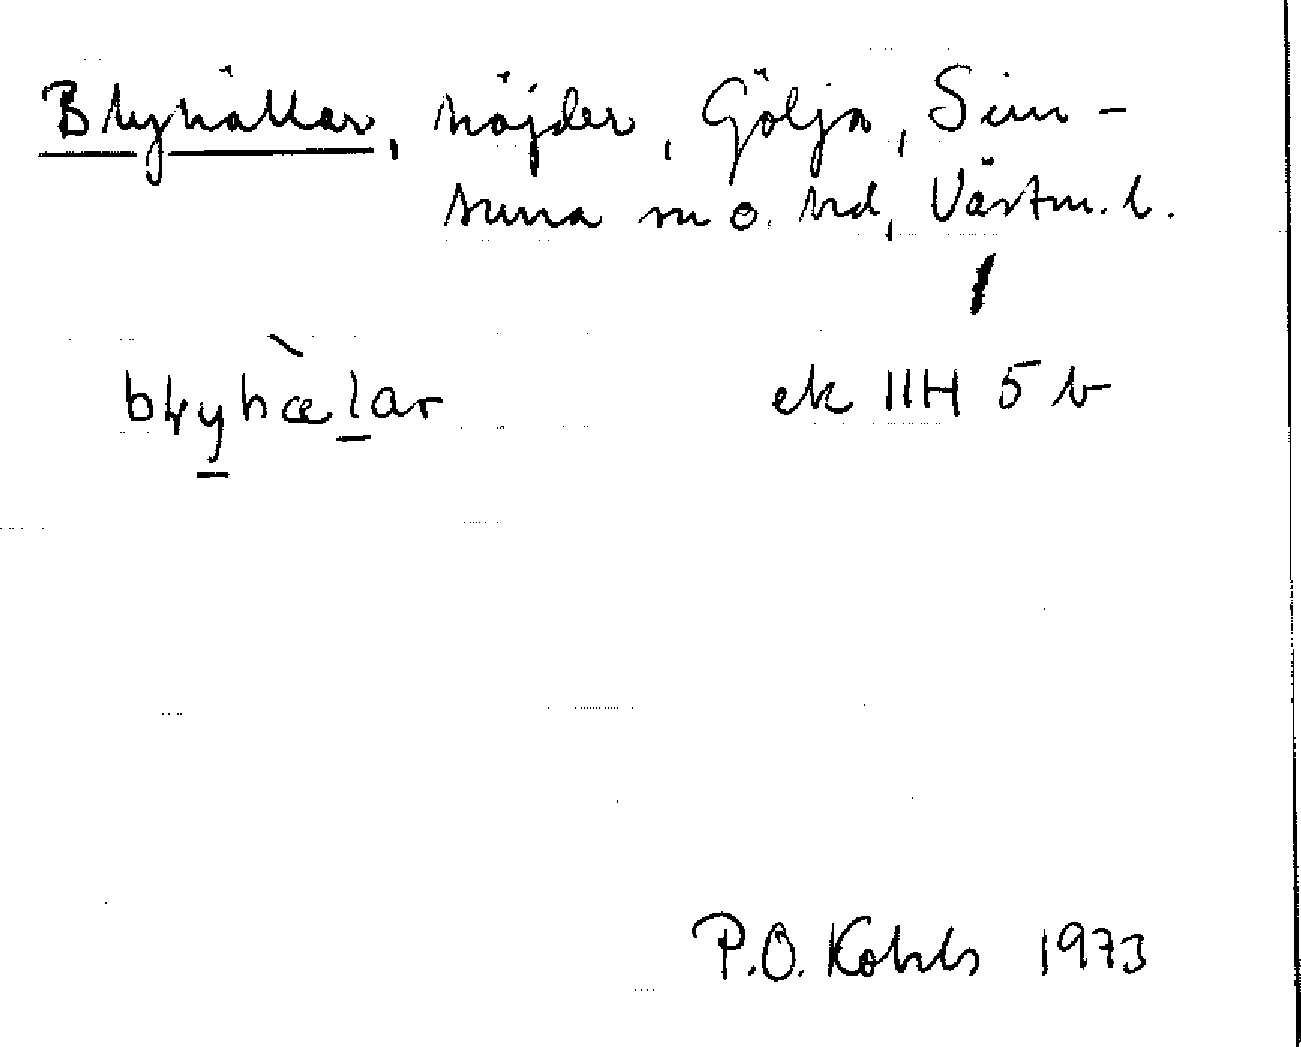 Blyhällar, höjder, Gölja, Sim-
tuna sn o. hd, Västm. l.
blyhælar ek 11H 5 b
P.O. Kohls 1973